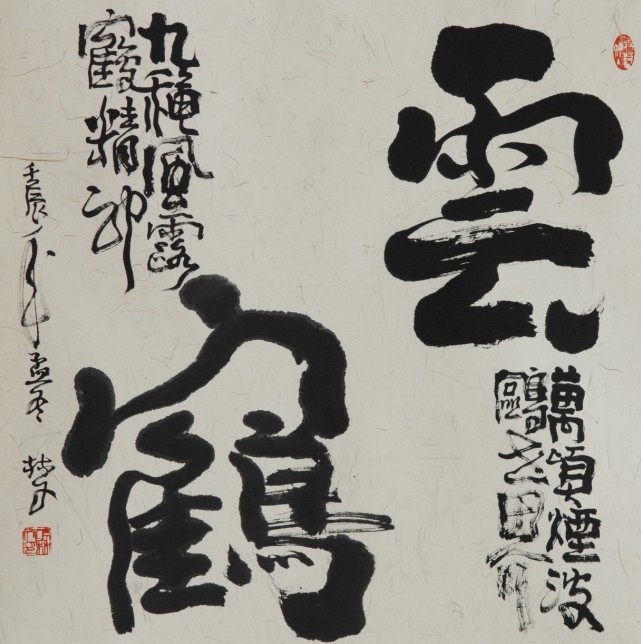 雲
萬頃煙波
鷗世界
鶴
九穐風露
鶴精神
壬辰年孟冬